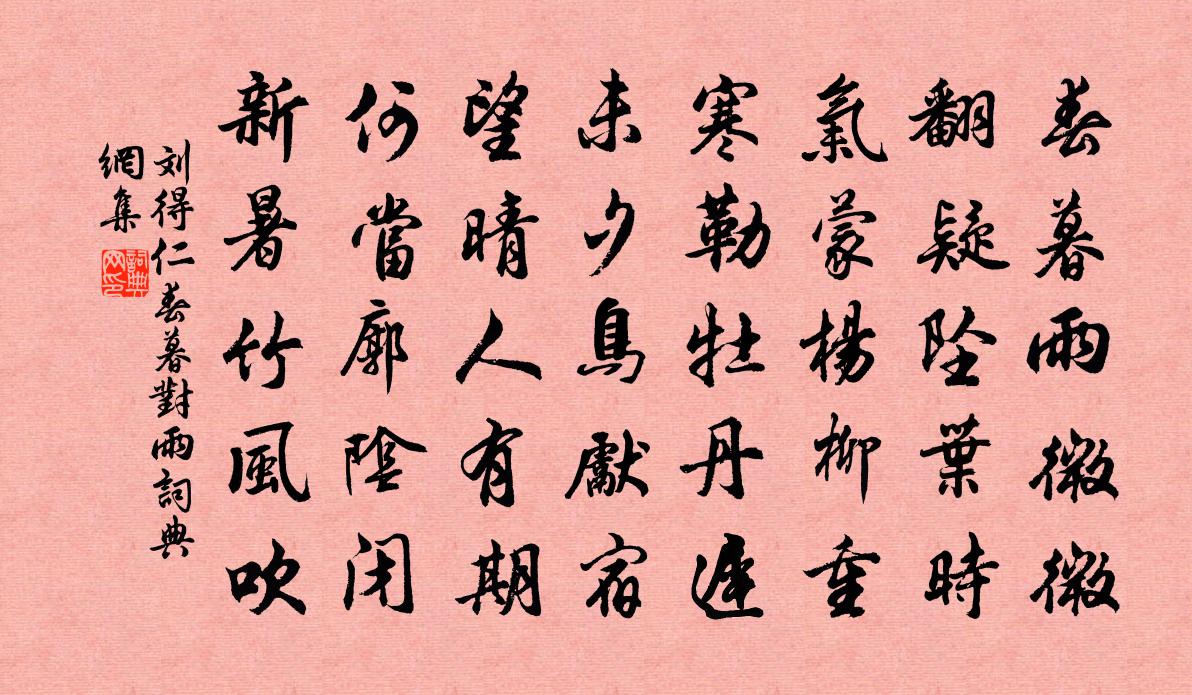 春暮雨微微
翻疑墜葉時
氣蒙楊柳重
寒勒牡丹遲
未夕鳥獻宿
望晴人有期
何當廓陰闭
新暑竹風吹
刘得仁春暮對雨詞典
網集
詞典
网印